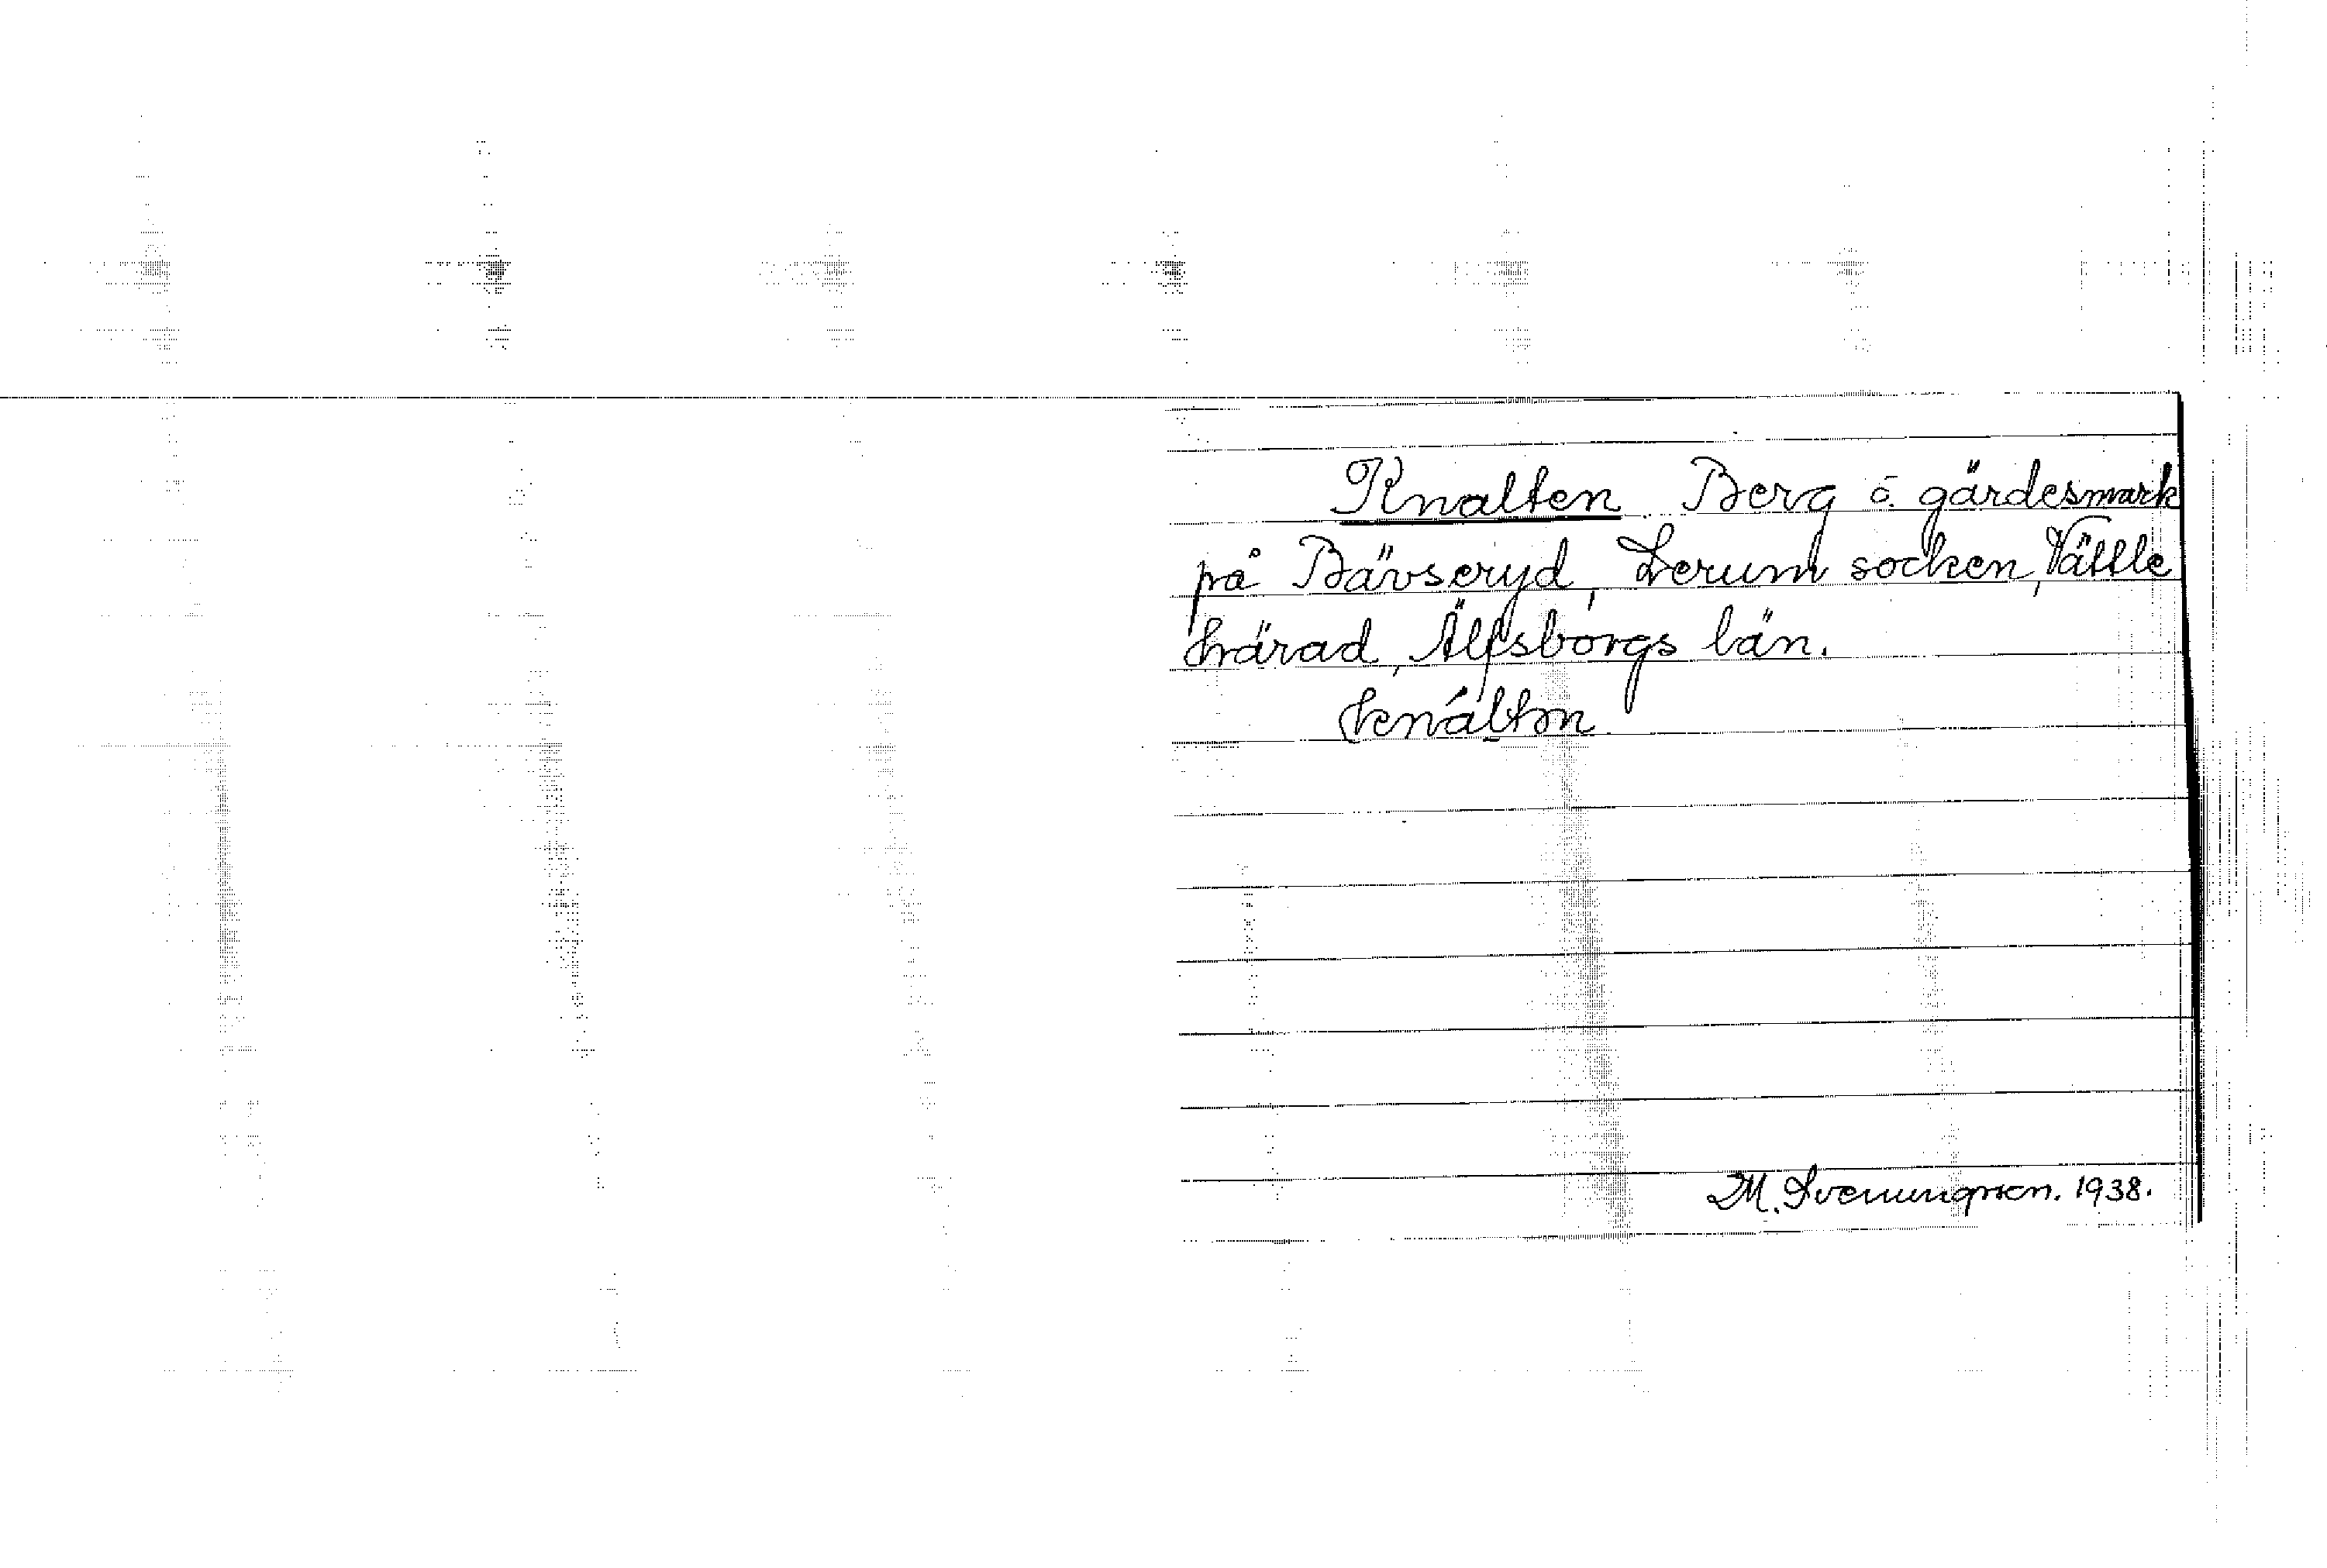 Knalten Berg o. gärdesmark
på Bävseryd, Lerum socken, Vättle
härad, Älfsborgs län.
knáltn
M. Svenungsson. 1938.